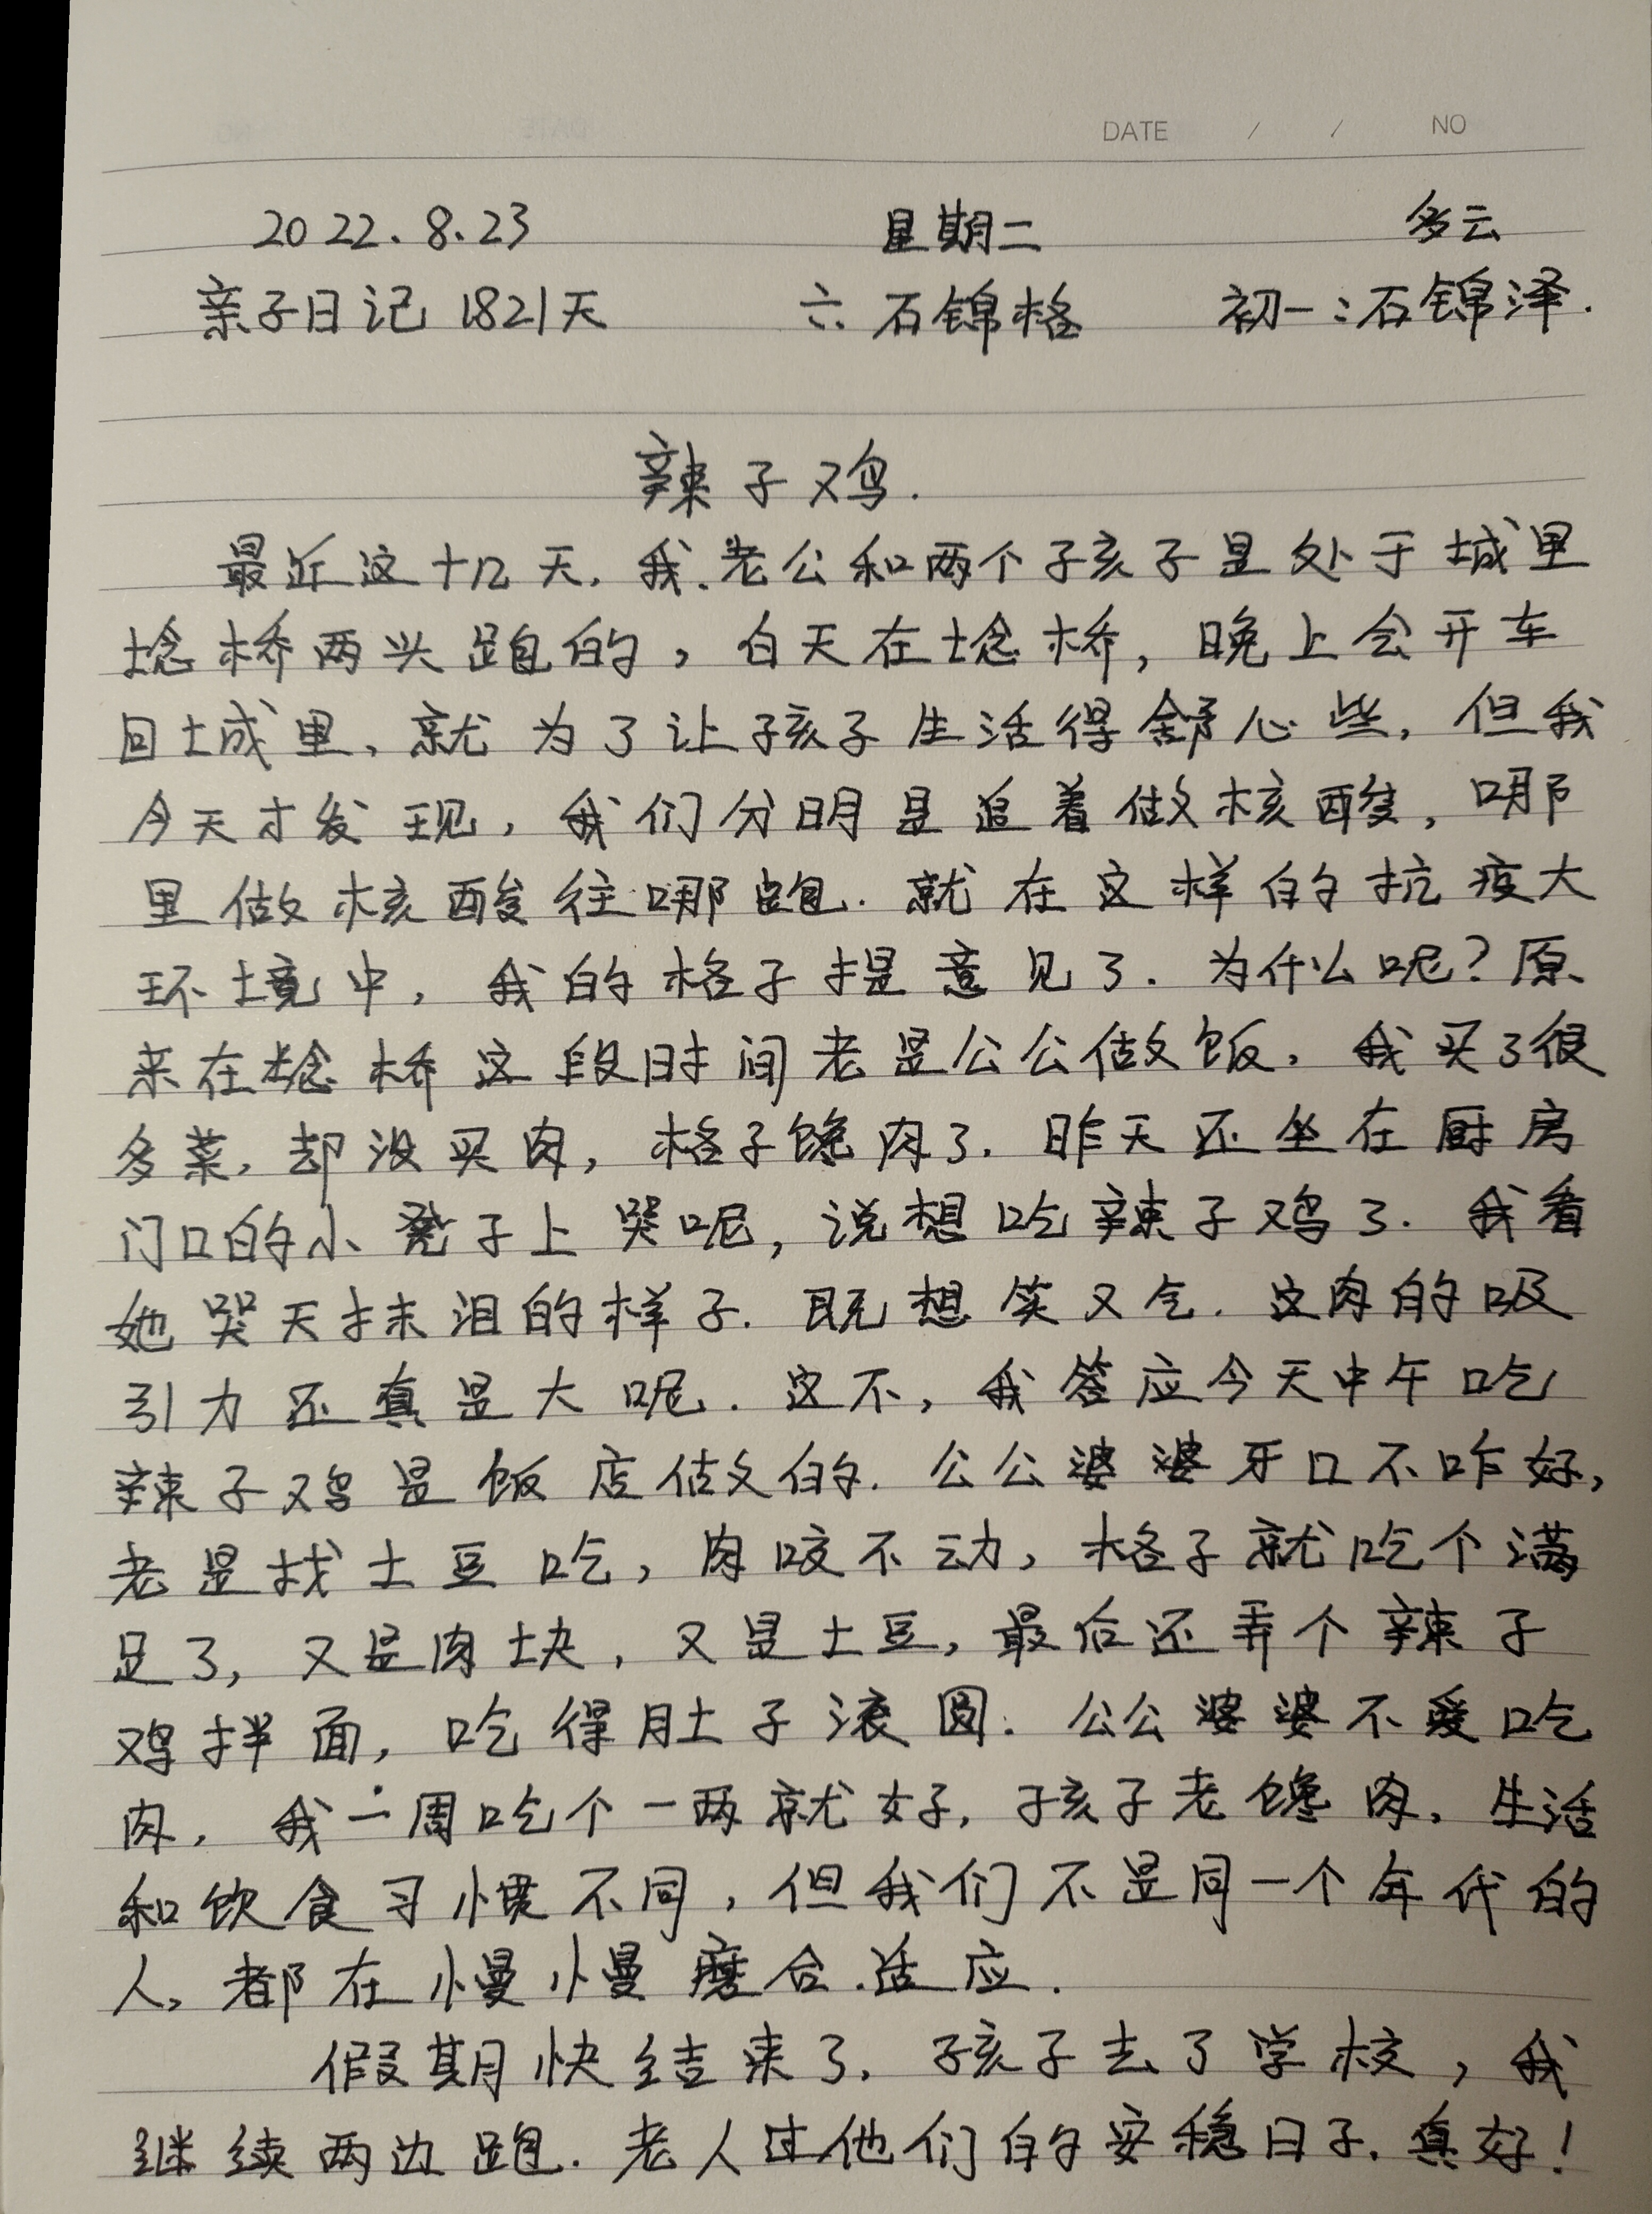 DATE / / NO
2022.8.23 星期二 多云
亲子日记 1821天 六:石锦格 初一:石锦泽.
辣子鸡.
最近这十几天,我.老公和两个孩子是处于城里
埝桥两头跑的,白天在埝桥,晚上会开车
回城里,就为了让孩子生活得舒心些,但我
今天才发现,我们分明是追着做核酸,哪
里做核酸往哪跑.就在这样的抗疫大
环境中,我的格子提意见了.为什么呢?原
来在埝桥这段时间老是公公做饭,我买了很
多菜,却没买肉,格子馋肉了.昨天还坐在厨房
门口的小凳子上哭呢,说想吃辣子鸡了.我看
她哭天抹泪的样子.既想笑又气.这肉的吸
引力还真是大呢.这不,我答应今天中午吃
辣子鸡是饭店做的.公公婆婆牙口不咋好,
老是找土豆吃,肉咬不动,格子就吃个满
足了,又是肉块,又是土豆,最后还弄个辣子
鸡拌面,吃得肚子滚圆.公公婆婆不爱吃
肉,我一周吃个一两就好,孩子老馋肉,生活
和饮食习惯不同,但我们不是同一个年代的
人,都在慢慢磨合.适应.
假期快结束了,孩子去了学校,我
继续两边跑.老人过他们的安稳日子,真好!